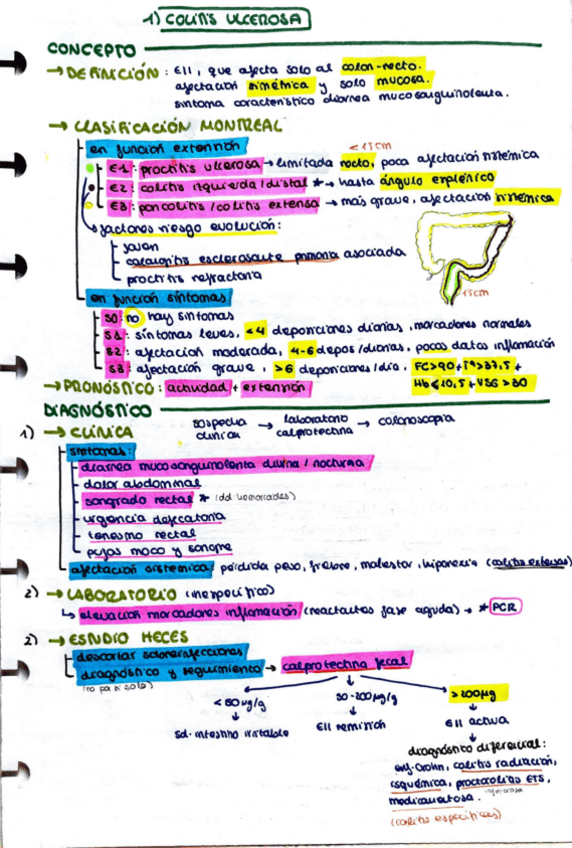 1) COLITIS ULCEROSA
CONCEPTO
→ DEFINICIÓN: EII, que afecta solo al colon-recto.
afectación simétrica y solo mucosa.
síntoma característico diarrea mucosanguinolenta.
→ CLASIFICACIÓN MONTREAL
en función extensión
<15cm
E1: proctitis ulcerosa → limitada recto, poca afectación sistémica
E2: colitis izquierda/distal * → hasta ángulo esplénico
E3: pancolitis/colitis extensa → más grave, afectación sistémica
factores riesgo evolución:
joven
colangitis esclerosante primaria asociada
proctitis refractaria
15cm
en función síntomas
S0: no hay síntomas
S1: síntomas leves, <4 deposiciones diarias, marcadores normales
S2: afectación moderada, 4-6 depos/diarias, pocos datos inflamación
S3: afectación grave, >6 deposiciones/día, FC>90 + Tª>37,5 +
Hb<10,5 + VSG>30
→ PRONÓSTICO: actividad + extensión
DIAGNÓSTICO
sospecha clínica → laboratorio calprotectina → colonoscopia
1) → CLÍNICA
síntomas:
diarrea mucosanguinolenta diurna/nocturna
dolor abdominal
sangrado rectal * (dd: hemorroides)
urgencia defecatoria
tenesmo rectal
pujos moco y sangre
afectación sistémica: pérdida peso, fiebre, malestar, hiporexia (colitis extensas)
2) → LABORATORIO (inespecífico)
↳ elevación marcadores inflamación (reactantes fase aguda) → * PCR
2) → ESTUDIO HECES
descartar sobreinfecciones
diagnóstico y seguimiento → calprotectina fecal
(no por sí sola)
<50 µg/g 50-200 µg/g >200µg
Sd. intestino irritable EII remisión EII activa
diagnóstico diferencial:
enf. Crohn, colitis radiación,
isquémica, proctocolitis ETS,
infecciosa
medicamentosa.
(colitis específicas)